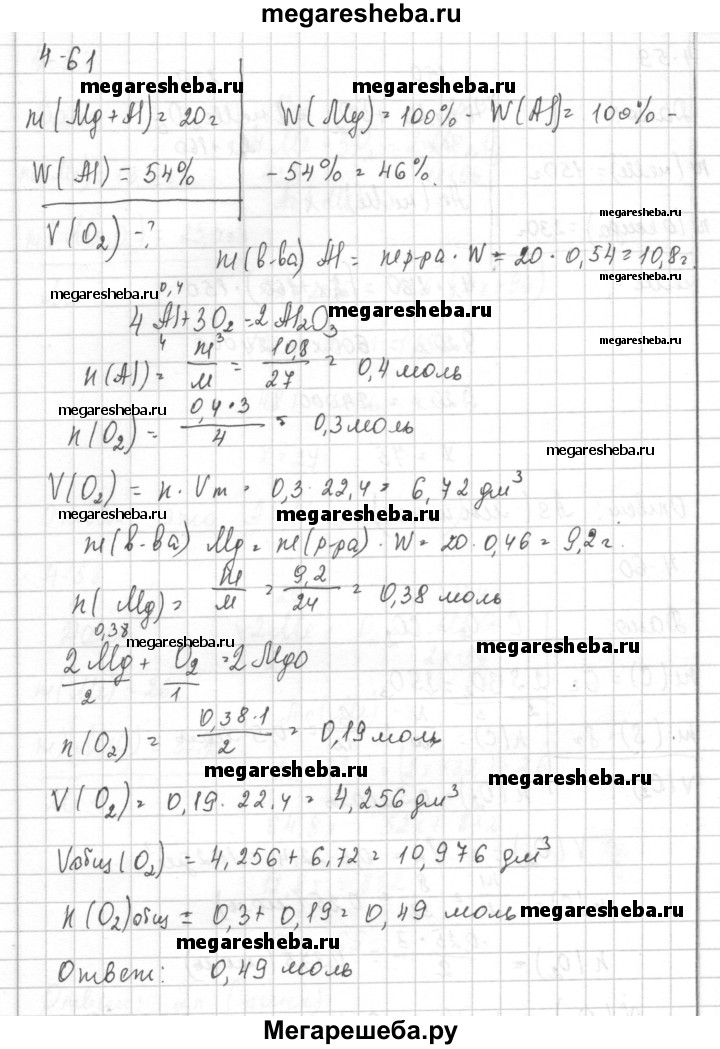 megaresheba.ru
4-61
megaresheba.ru megaresheba.ru
m(Mg+Al)=20г W(Mg)=100%-W(Al)=100%-
W(Al)=54% -54%=46%.
megaresheba.ru
V(O₂)-?
m(в-ва) Al = mр-ра · W = 20·0,54=10,8г.
megaresheba.ru
megaresheba.ru 0,4
4Al+3O₂=2Al₂O₃
4 3
n(Al)= m/M = 10,8/27 = 0,4 моль
megaresheba.ru
n(O₂) = 0,4·3/4 = 0,3 моль
megaresheba.ru
V(O₂) = n·Vm = 0,3·22,4= 6,72 дм³
megaresheba.ru megaresheba.ru
m(в-ва) Mg = m(р-ра)·W= 20·0,46=9,2г.
megaresheba.ru
n(Mg)= m/M = 9,2/24 = 0,38 моль
0,38 megaresheba.ru megaresheba.ru
2Mg + O₂ =2MgO
2 1
n(O₂) = 0,38·1/2 = 0,19 моль
megaresheba.ru megaresheba.ru
V(O₂)= 0,19·22,4= 4,256 дм³
Vобщ(O₂) = 4,256+6,72=10,976 дм³
n(O₂)общ = 0,3+0,19=0,49 моль megaresheba.ru
megaresheba.ru
Ответ: 0,49 моль
Мегарешеба.ру